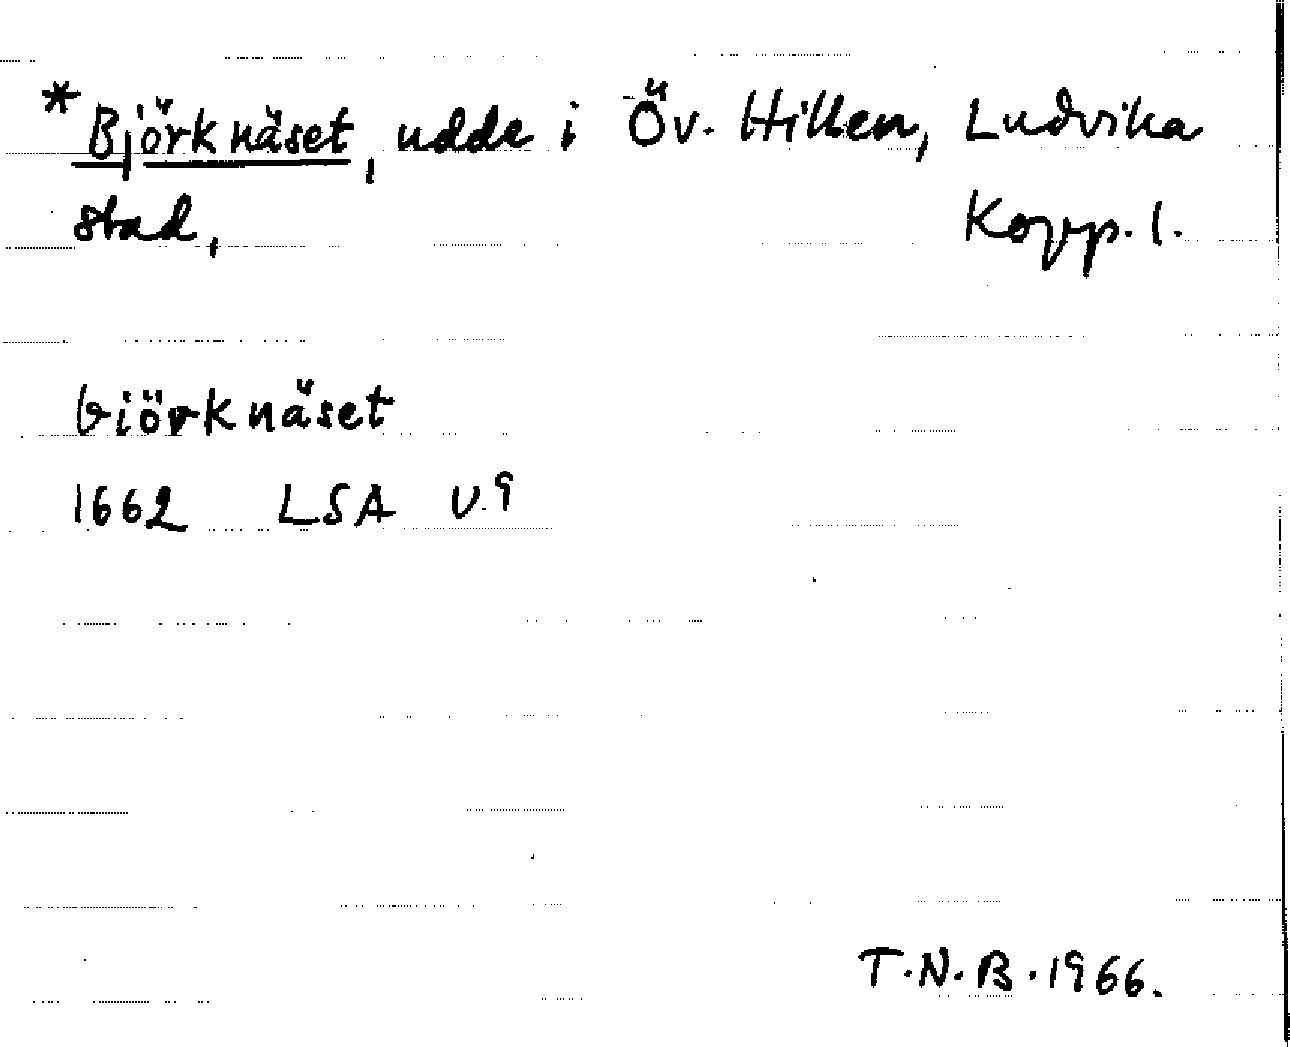 *Björknäset, udde i Öv. Hillen, Ludvika
stad, Kopp. l.
biörknäset
1662 LSA U 9
T.N.B. 1966.